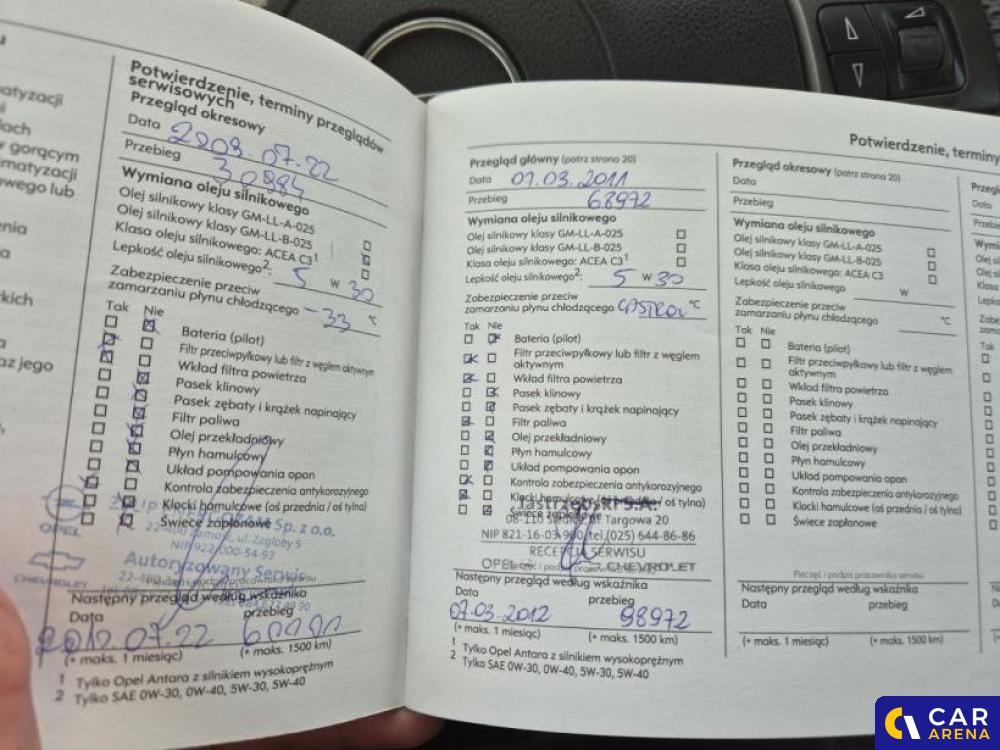 atyzacji
w gorącym
matyzacji
owego lub
az jego
Potwierdzenie, terminy przeglądów
serwisowych
Przegląd okresowy
Data 2009.07.22
Przebieg 30984
Wymiana oleju silnikowego
Olej silnikowy klasy GM-LL-A-025
Olej silnikowy klasy GM-LL-B-025
Klasa oleju silnikowego: ACEA C3¹
Lepkość oleju silnikowego². 5 W 30
Zabezpieczenie przeciw
zamarzaniu płynu chłodzącego -33 °C
Tak Nie
Bateria (pilot)
Filtr przeciwpyłkowy lub filtr z węglem aktywnym
Wkład filtra powietrza
Pasek klinowy
Pasek zębaty i krążek napinający
Filtr paliwa
Olej przekładniowy
Płyn hamulcowy
Układ pompowania opon
Kontrola zabezpieczenia antykorozyjnego
Klocki hamulcowe (oś przednia / oś tylna)
Świece zapłonowe
OPEL
Sp. z o.o.
ul. Zagłoby 5
CHEVROLET
Autoryzowany Serwis
Następny przegląd według wskaźnika
Data przebieg
2010.07.22
(+ maks. 1 miesiąc) (+ maks. 1500 km)
1 Tylko Opel Antara z silnikiem wysokoprężnym
2 Tylko SAE 0W-30, 0W-40, 5W-30, 5W-40
Przegląd główny (patrz strona 20)
Data 07.03.2011
Przebieg 68972
Wymiana oleju silnikowego
Olej silnikowy klasy GM-LL-A-025
Olej silnikowy klasy GM-LL-B-025
Klasa oleju silnikowego: ACEA C3¹
Lepkość oleju silnikowego²: 5 W 30
Zabezpieczenie przeciw
zamarzaniu płynu chłodzącego CASTROL °C
Tak Nie
Bateria (pilot)
Filtr przeciwpyłkowy lub filtr z węglem
aktywnym
Wkład filtra powietrza
Pasek klinowy
Pasek zębaty i krążek napinający
Filtr paliwa
Olej przekładniowy
Płyn hamulcowy
Układ pompowania opon
Kontrola zabezpieczenia antykorozyjnego
Klocki hamulcowe (oś przednia / oś tylna)
Świece zapłonowe
Jastrzębski S.A.
08-110 Siedlce, ul. Targowa 20
NIP 821-16-03-900, tel.(025) 644-86-86
RECEPCJA SERWISU
OPEL CHEVROLET
Następny przegląd według wskaźnika
Data przebieg
07.03.2012 98972
(+ maks. 1 miesiąc) (+ maks. 1500 km)
1 Tylko Opel Antara z silnikiem wysokoprężnym
2 Tylko SAE 0W-30, 0W-40, 5W-30, 5W-40
Potwierdzenie, terminy
Przegląd okresowy (patrz strona 20)
Data
Przebieg
Wymiana oleju silnikowego
Olej silnikowy klasy GM-LL-A-025
Olej silnikowy klasy GM-LL-B-025
Klasa oleju silnikowego: ACEA C3
Lepkość oleju silnikowego W
Zabezpieczenie przeciw
zamarzaniu płynu chłodzącego °C
Tak Nie
Bateria (pilot)
Filtr przeciwpyłkowy lub filtr z węglem
aktywnym
Wkład filtra powietrza
Pasek klinowy
Pasek zębaty i krążek napinający
Filtr paliwa
Olej przekładniowy
Płyn hamulcowy
Układ pompowania opon
Kontrola zabezpieczenia antykorozyjnego
Klocki hamulcowe (oś przednia / oś tylna)
Świece zapłonowe
Pieczęć i podpis pracownika serwisu
Następny przegląd według wskaźnika
Data przebieg
(+ maks. 1 miesiąc) (+ maks. 1500 km)
Data
Tak
CAR
ARENA